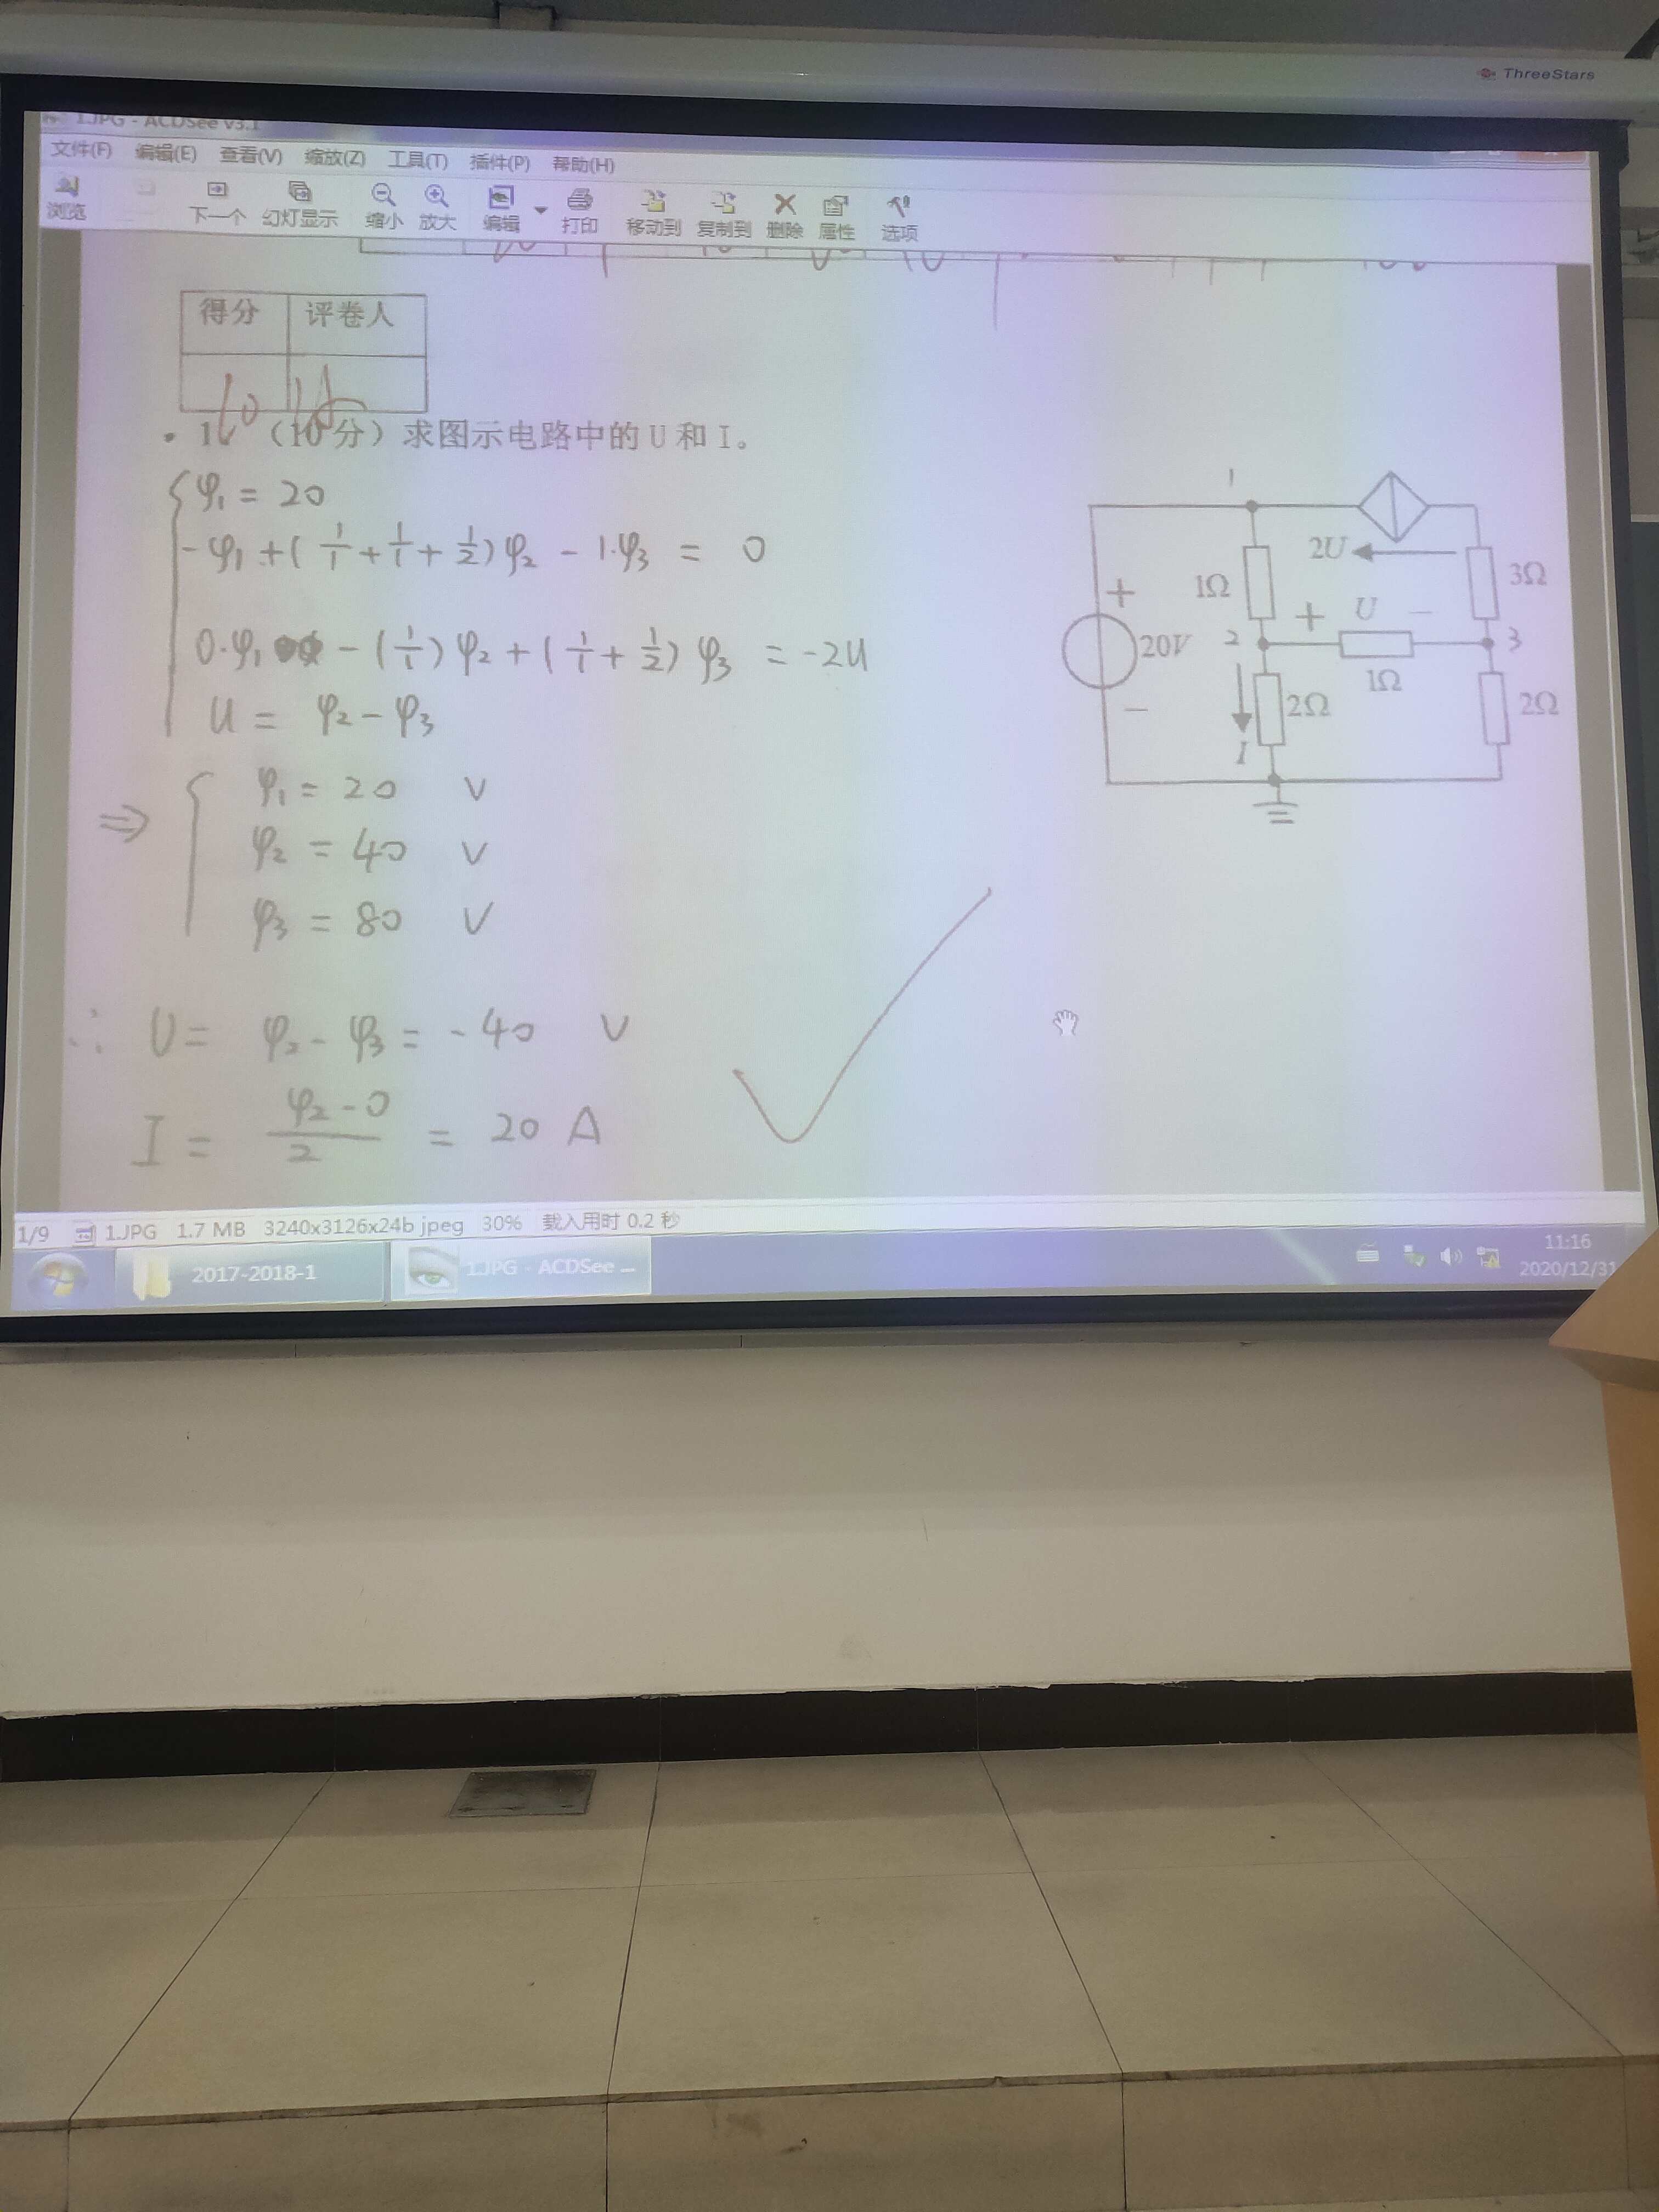 ThreeStars
1.JPG - ACDSee v3.1
文件(F) 编辑(E) 查看(V) 缩放(Z) 工具(T) 插件(P) 帮助(H)
浏览 下一个 幻灯显示 缩小 放大 编辑 打印 移动到 复制到 删除 属性 选项
得分 评卷人
10
1、(10分)求图示电路中的 U 和 I。
φ₁ = 20
-φ₁ + (1/1 + 1/1 + 1/2)φ₂ - 1·φ₃ = 0
0·φ₁ - (1/1)φ₂ + (1/1 + 1/2)φ₃ = -2U
U = φ₂ - φ₃
⇒ φ₁ = 20 V
φ₂ = 40 V
φ₃ = 80 V
∴ U = φ₂ - φ₃ = -40 V
I = (φ₂ - 0)/2 = 20 A
1
2U
1Ω
3Ω
+ U −
+
20V
−
2
3
1Ω
2Ω
2Ω
I
1/9 1.JPG 1.7 MB 3240x3126x24b jpeg 30% 载入用时 0.2 秒
2017-2018-1
1.JPG - ACDSee ...
11:16
2020/12/31